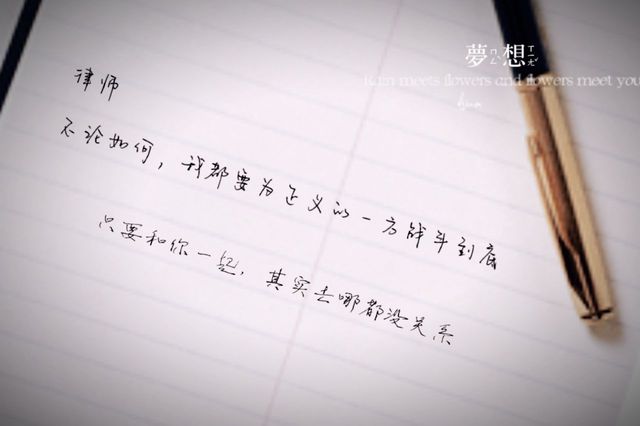 夢想
ㄇㄥˋ ㄒㄧㄤˇ
Rain meets flowers and flowers meet you
律师
不论如何，我都要为正义的一方战斗到底
只要和你一起，其实去哪都没关系